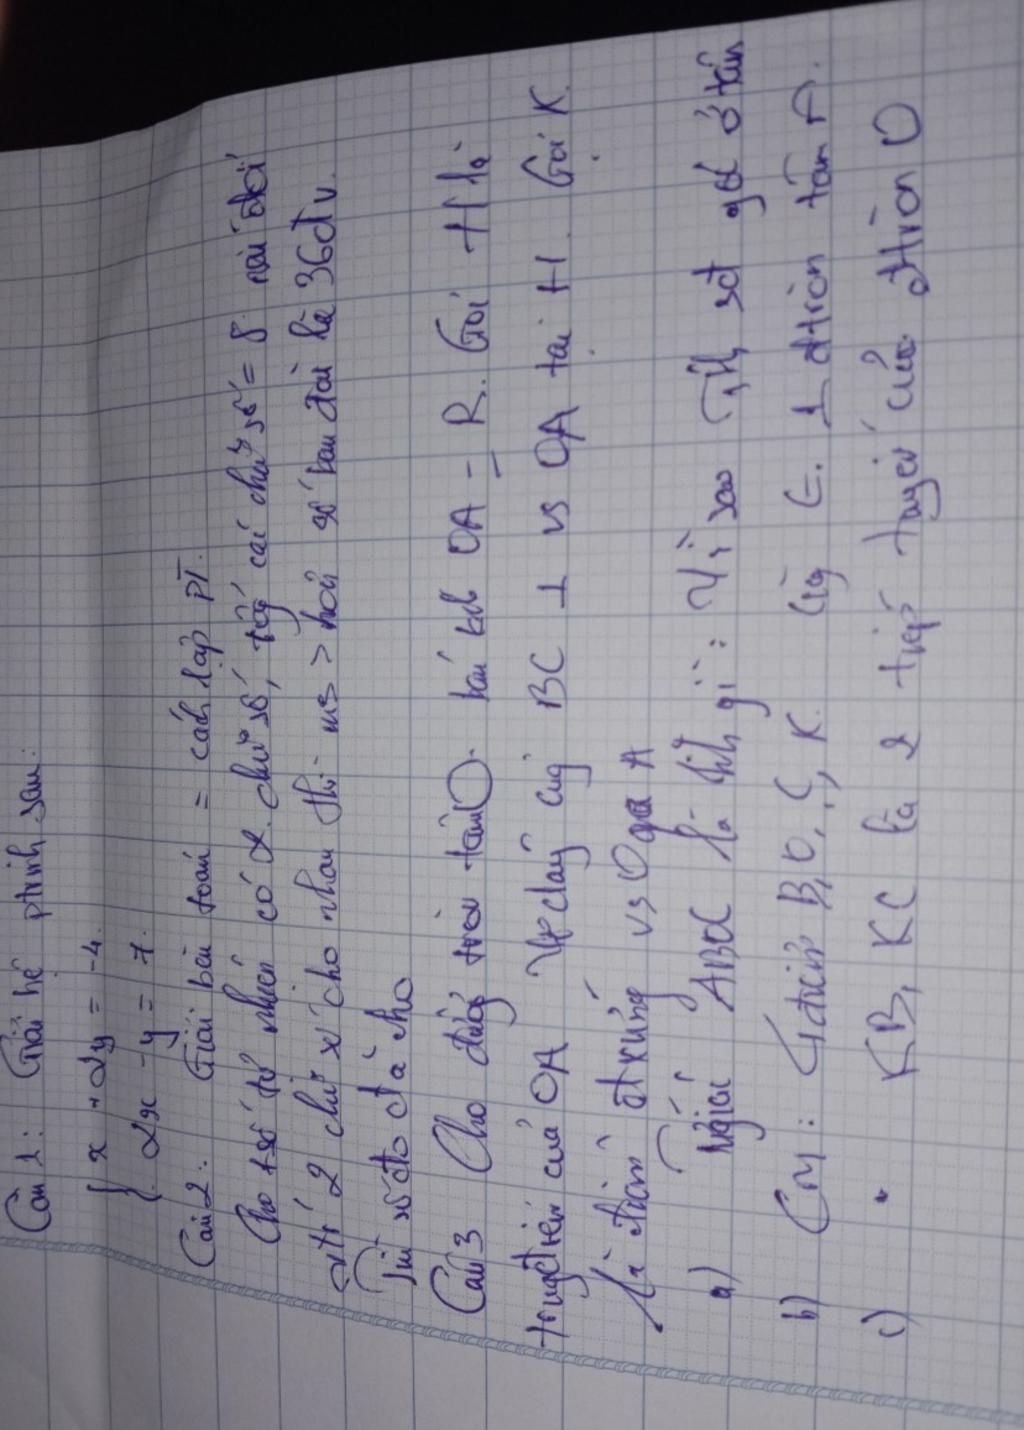 Câu 1: Giải hệ ptrình sau:
{ x + 2y = -4.
2x - y = 7.
Câu 2: Giải bài toán = cách lập PT.
Cho 1 số tự nhiên có 2 chữ số, tổg các chữ số = 8 nếu đổi
vtrí 2 chữ x' cho nhau thì ms > hơn số ban đầu là 36đv.
Tìm số đó đã cho
Câu 3 Cho đườg tròn tâm O. bán kih OA = R. Gọi H là
trugđiểm của OA Vẽ dây cug BC ⊥ vs OA tại H. Gọi K.
là điểm đt xứng vs O qua A
a) Tứgiác ABOC là hìh gì: Vì sao Tíh sđ góc ở tâm
b) CM: 4 điểm B, O, C, K. cùg ∈. 1 đtròn tâm A.
c) KB, KC là 2 tiếp tuyến của đtròn O